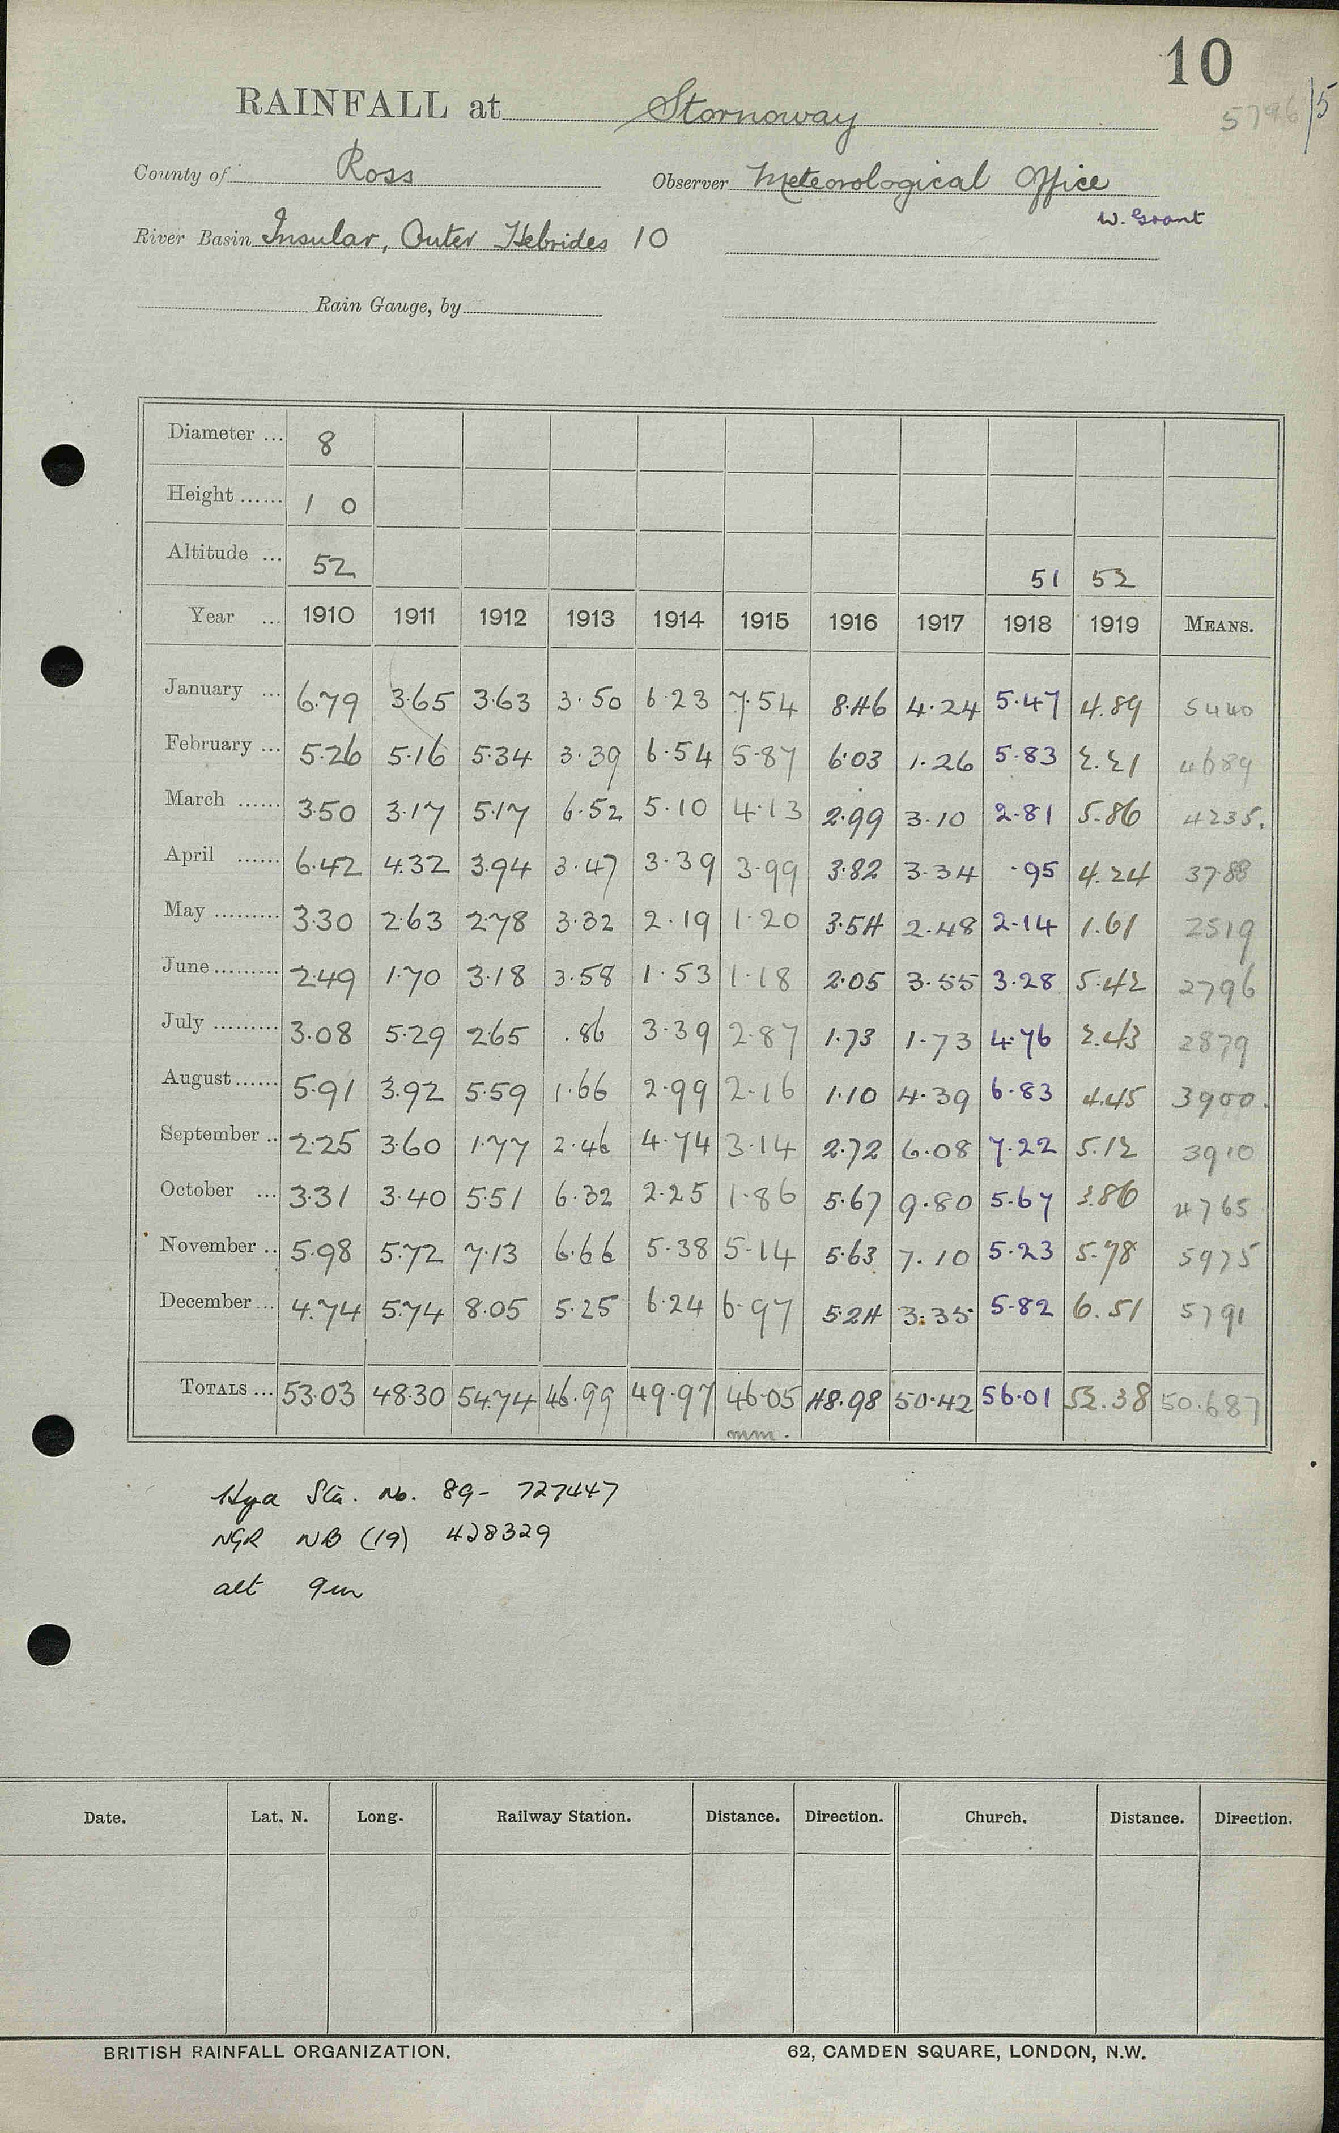 10
5796/5
RAINFALL at Stornoway
County of Ross Observer Meteorological Office
W. Grant
River Basin Insular, Outer Hebrides 10
Rain Gauge, by
Diameter ... 8
Height ...... 1 0
Altitude ... 52 51 52
Year ... 1910 1911 1912 1913 1914 1915 1916 1917 1918 1919 MEANS.
January ... 6.79 3.65 3.63 3.50 6.23 7.54 8.46 4.24 5.47 4.89 5440
February ... 5.26 5.16 5.34 3.39 6.54 5.87 6.03 1.26 5.83 2.21 4689
March ...... 3.50 3.17 5.17 6.52 5.10 4.13 2.99 3.10 2.81 5.86 4235.
April ...... 6.42 4.32 3.94 3.47 3.39 3.99 3.82 3.34 .95 4.24 3788
May ......... 3.30 2.63 2.78 3.32 2.19 1.20 3.54 2.48 2.14 1.61 2519
June ......... 2.49 1.70 3.18 3.58 1.53 1.18 2.05 3.55 3.28 5.42 2796
July ......... 3.08 5.29 2.65 .86 3.39 2.87 1.73 1.73 4.76 2.43 2879
August ...... 5.91 3.92 5.59 1.66 2.99 2.16 1.10 4.39 6.83 4.45 3900.
September .. 2.25 3.60 1.77 2.46 4.74 3.14 2.72 6.08 7.22 5.12 3910
October ... 3.31 3.40 5.51 6.32 2.25 1.86 5.67 9.80 5.67 3.86 4765
November .. 5.98 5.72 7.13 6.66 5.38 5.14 5.63 7.10 5.23 5.78 5975
December ... 4.74 5.74 8.05 5.25 6.24 6.97 5.24 3.35 5.82 6.51 5791
TOTALS ... 53.03 48.30 54.74 46.99 49.97 46.05 48.98 50.42 56.01 52.38 50.687
mm.
Hyd Sta. No. 89- 727447
NGR NB (19) 428329
alt 9m
Date. Lat. N. Long. Railway Station. Distance. Direction. Church. Distance. Direction.
BRITISH RAINFALL ORGANIZATION. 62, CAMDEN SQUARE, LONDON, N.W.